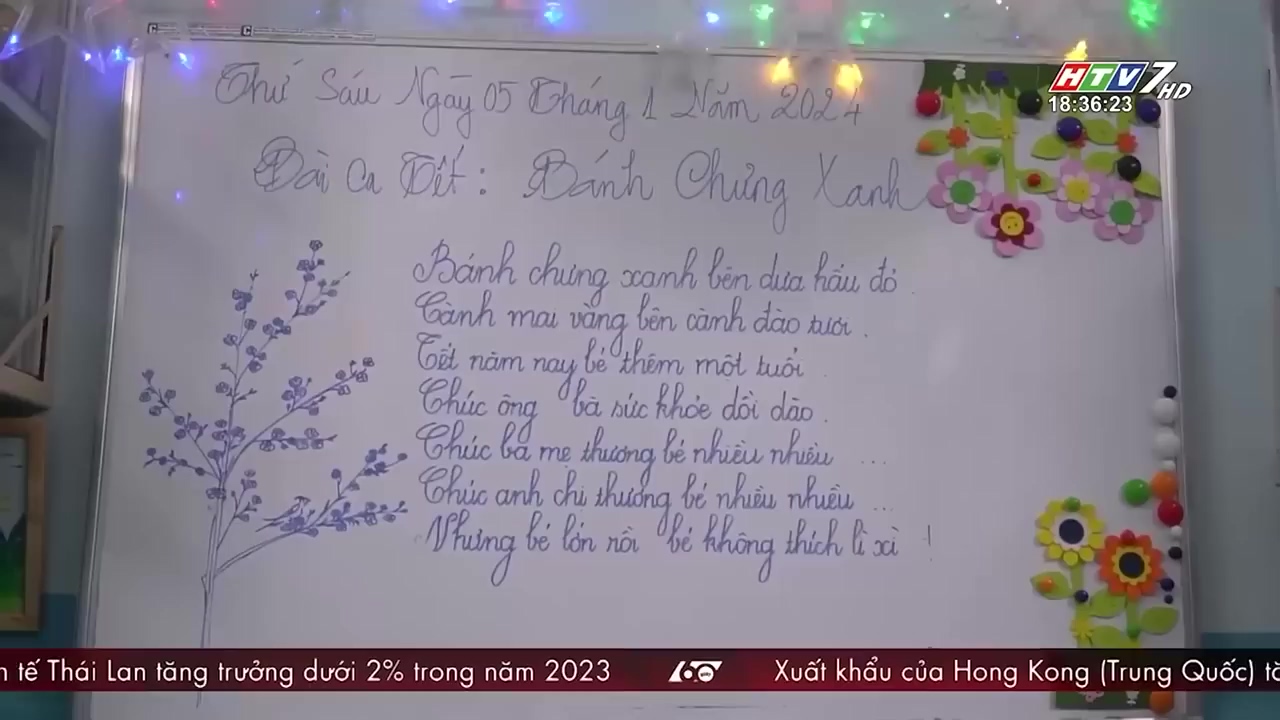 HTV7 HD
18:36:23
Thứ Sáu Ngày 05 Tháng 1 Năm 2024
Bài Ca Tết: Bánh Chưng Xanh
Bánh chưng xanh bên dưa hấu đỏ.
Cành mai vàng bên cành đào tươi.
Tết năm nay bé thêm một tuổi
Chúc ông bà sức khỏe dồi dào.
Chúc ba mẹ thương bé nhiều nhiều ...
Chúc anh chị thương bé nhiều nhiều ...
Nhưng bé lớn rồi bé không thích lì xì !
tế Thái Lan tăng trưởng dưới 2% trong năm 2023 60 giây Xuất khẩu của Hong Kong (Trung Quốc)